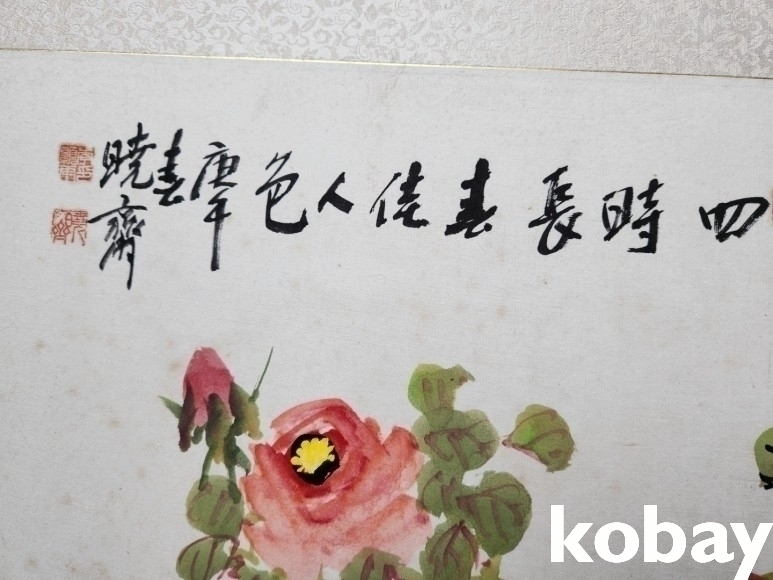 四時長春佳人色
庚午春
曉齋
kobay